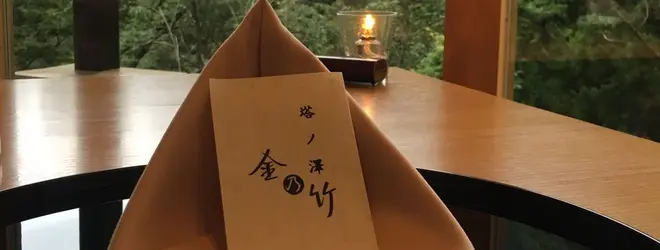 塔ノ澤
金乃竹